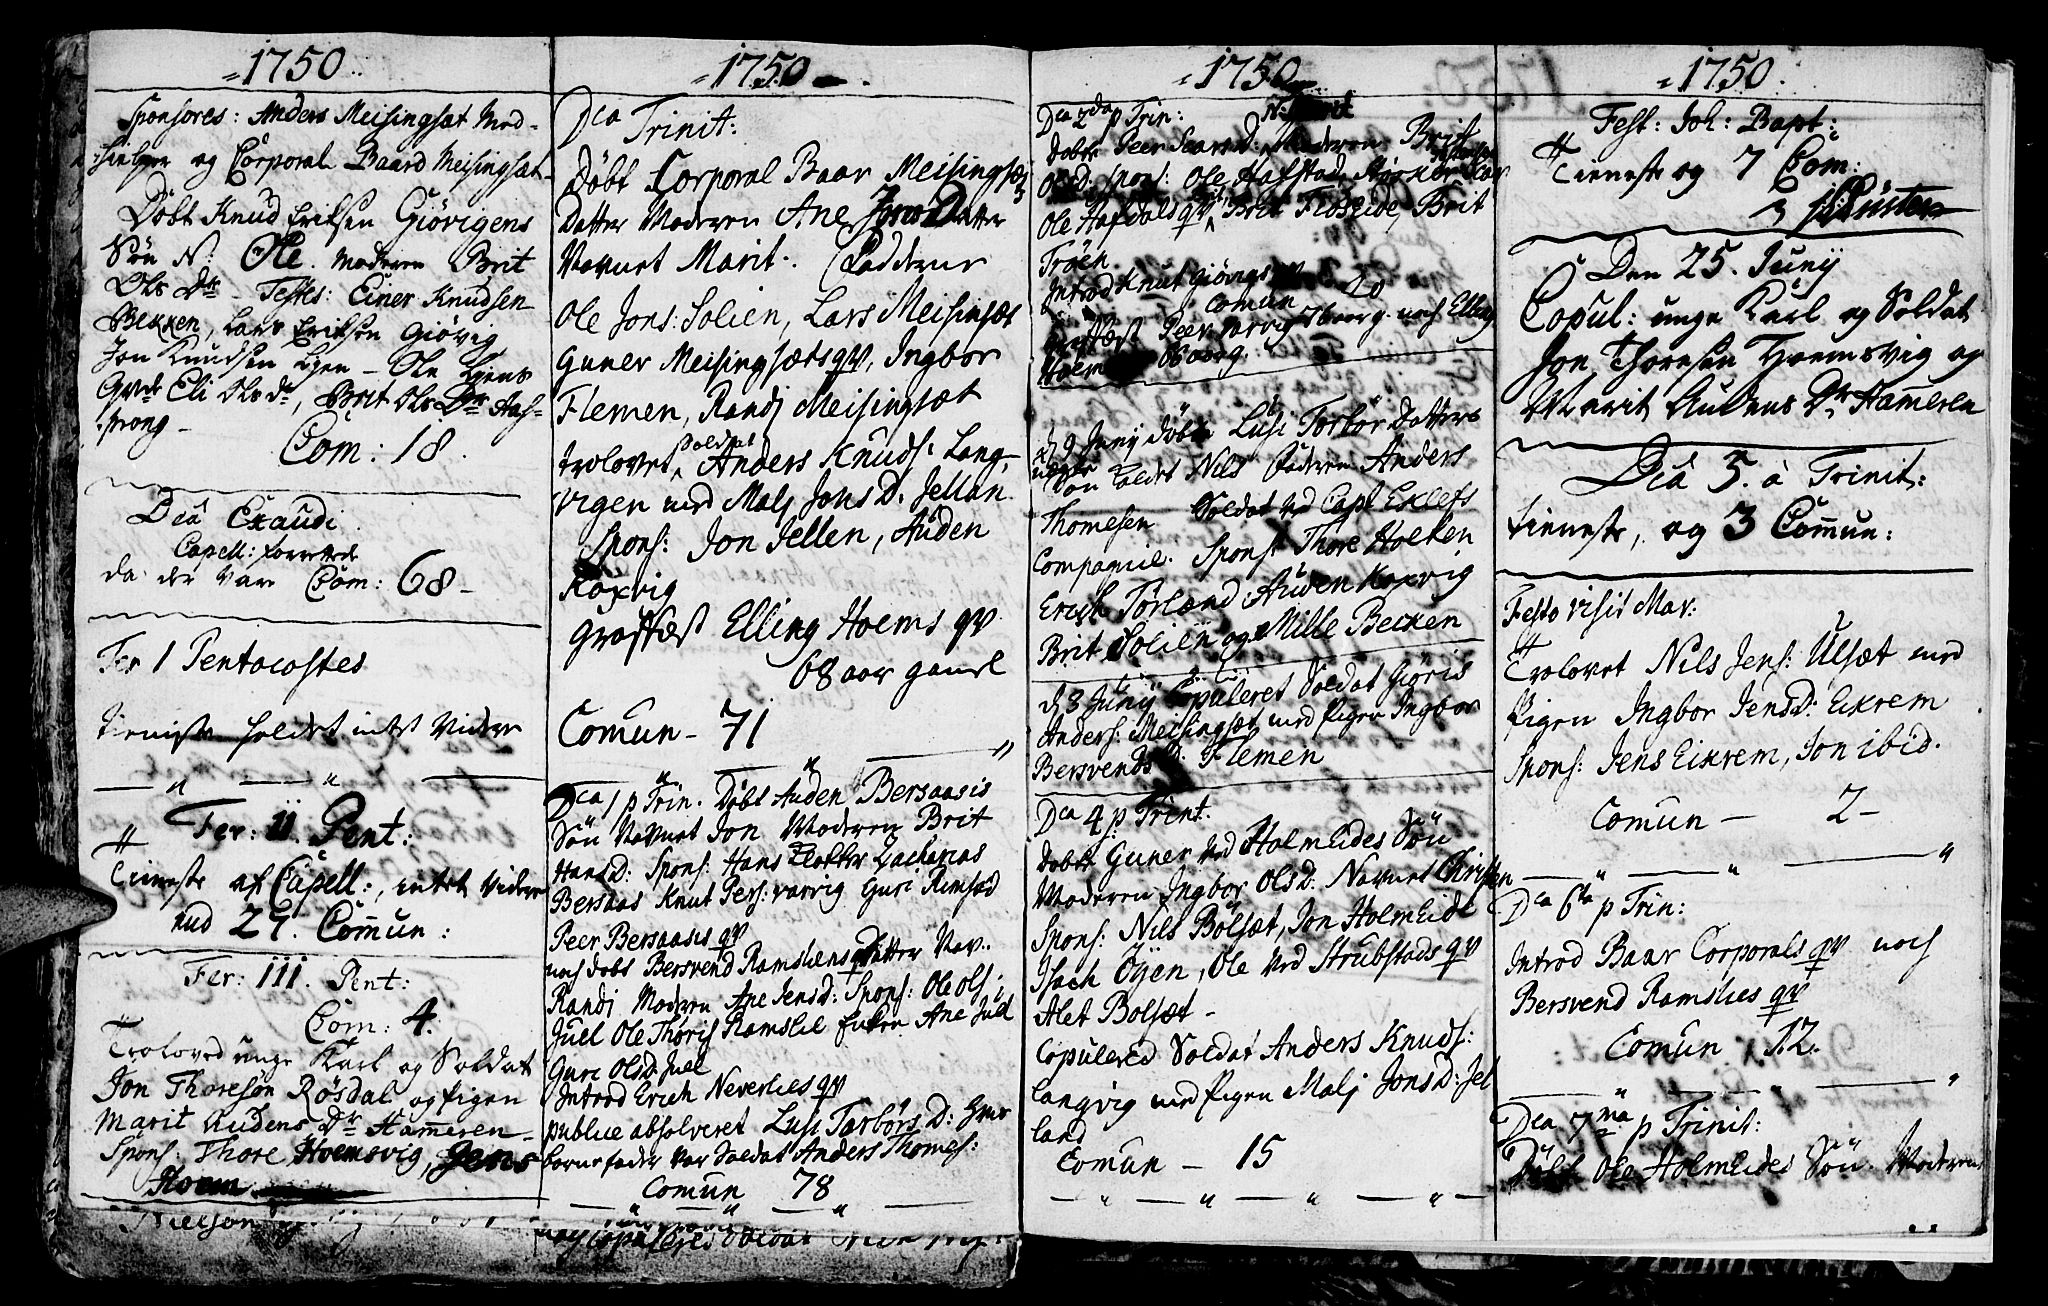 1750
Sponsores: Anders Meisingsæt Med-
hielper og Corporal Baard Meisingsæt
Döbt Knud Eriksen Giövigens
Sön N: Ole. Moderen Brit
Ols Dr - Testes: Einer Knudsen
Bekken, Lars Eriksen Giövig
Jon Knudsen Lyen - Ole Lyens
Qvde Eli Olsdr, Brit Ols Dr Aas-
strong -
Com: 18.
Dca Exaudi
Capell: forrettede
da der var Com: 68 -
Fer 1 Pentacostes
tieniste holdet intet videre
Fer: II. Pent:
Tieneste af Capell:, intet videre
end 27. Commun:
Fer: III. Pent:
Com: 4.
Troloved unge Karl og Soldat
Jon Thoresön Rösdal og pigen
Marit Audens Dr Hammeren -
Spons: Thore Hoemsvig, Jens
Hoem
1750
Dca Trinit:
Döbt Corporal Baar Meisingsæt
Datter Moderen Ane Jons Datter
Navnet Marit. Fadderne
Ole Jons: Solien, Lars Meisingsæt
Guner Meisingsætsqv, Ingbor
Flemen, Randj Meisingsæt
trolovet Soldat Anders Knuds: Lang-
vigen med Malj JonsD: Jellan
Spons: Jon Jellen, Auden
Koxvig
Graffæst Elling Hoems qv
68 aar gamel
Comun - 71
Dca 1 p Trin. Döbt Auden Bersaasis
Sön Navnet Jon Moderen Brit
HansD: Spons: Hans Klokker Zacharias
Bersaas Knut Pers: varvig Guri Remsød
Peer Bersaasis qv
noch döbt Bersvend Ramsliens Datter Nav:
Randj Moderen Ane JensD: Spons: Ole Ols:
Juel Ole Thoris Ramslil Enken Ane Juel
Guri OlsD: Juel
Introd Erich Neverlies qv
publice absolveret Lusi TorbörsD: hver
barnefader var Soldat Anders Thomes:
Comun 78
1750
Dca 2da p Trin:
döbt Peer
Ole Hafdals qv, Brit Floseide, Brit
Tröen
Introd Knut Giövigs qv
Comun 20
graffæst Peer Varvig 78 aar g. noch Elling
Holm
d 9 Junij döbt Lusi Torbör Datters
uægte
Sön kaldet Nils Faderen Anders
Thomesen Soldat ved Capt Exlefs
Compagnie. Spons: Thore Holken
Erich Törlænd Auden Koxvig
Brit Solien og Mille Becken
d 3 Junij Copuleret Soldat Giöris
Anders: Meisingsæt med pigen Ingbor
BersvendsD. Flemen
Dca 4 p: Trint.
döbt Guner ved Holmeides Sön
Moderen Ingbor OlsD: Navnet Christen
Spons: Nils Bölsæt, Jon Holmeide
Isach Öyen, Ole ved Strubstads qv
Alet Bolsæt -
Copulered Soldat Anders Knuds:
Langvig med pigen Malj JonsD: Jel
land
Comun - 15
1750.
Fest: Joh: Bapt:
Tieneste og 7 Com:
Den 25. Juny
Copul: unge Karl og Soldat
Jon Thoresen Hoemsvig og
Marit Audens Dr Hammeren
Dca 5. a Trinit:
tieneste, og 3 Commun:
Festo visit Mar:
Trolovet Nils Jens: Ulsæt med
Pigen Ingbor JensD: Eikrem
Spons: Jens Eikrem, Jon ibid.
Comun - 2 -
Dca 6ta p Trin:
Introd Baar Corporals qv noch
Bersvend Ramslies qv
Comun 12.
Dca 7ma p Trinit:
Döbt Ole Holmeides Sön Moderen